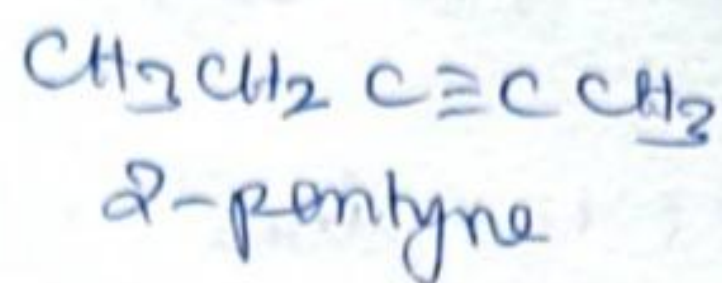 CH3CH2 C≡C CH3
2-pentyne